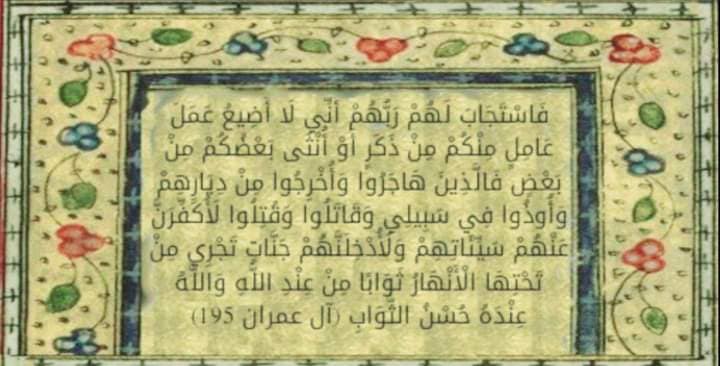 فَاسْتَجَابَ لَهُمْ رَبُّهُمْ أَنِّي لَا أُضِيعُ عَمَلَ
عَامِلٍ مِنْكُمْ مِنْ ذَكَرٍ أَوْ أُنْثَى بَعْضُكُمْ مِنْ
بَعْضٍ فَالَّذِينَ هَاجَرُوا وَأُخْرِجُوا مِنْ دِيَارِهِمْ
وَأُوذُوا فِي سَبِيلِي وَقَاتَلُوا وَقُتِلُوا لَأُكَفِّرَنَّ
عَنْهُمْ سَيِّئَاتِهِمْ وَلَأُدْخِلَنَّهُمْ جَنَّاتٍ تَجْرِي مِنْ
تَحْتِهَا الْأَنْهَارُ ثَوَابًا مِنْ عِنْدِ اللَّهِ وَاللَّهُ
عِنْدَهُ حُسْنُ الثَّوَابِ (آل عمران 195)